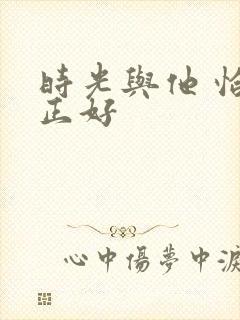 時光與他 恰
正好
心中傷夢中淚